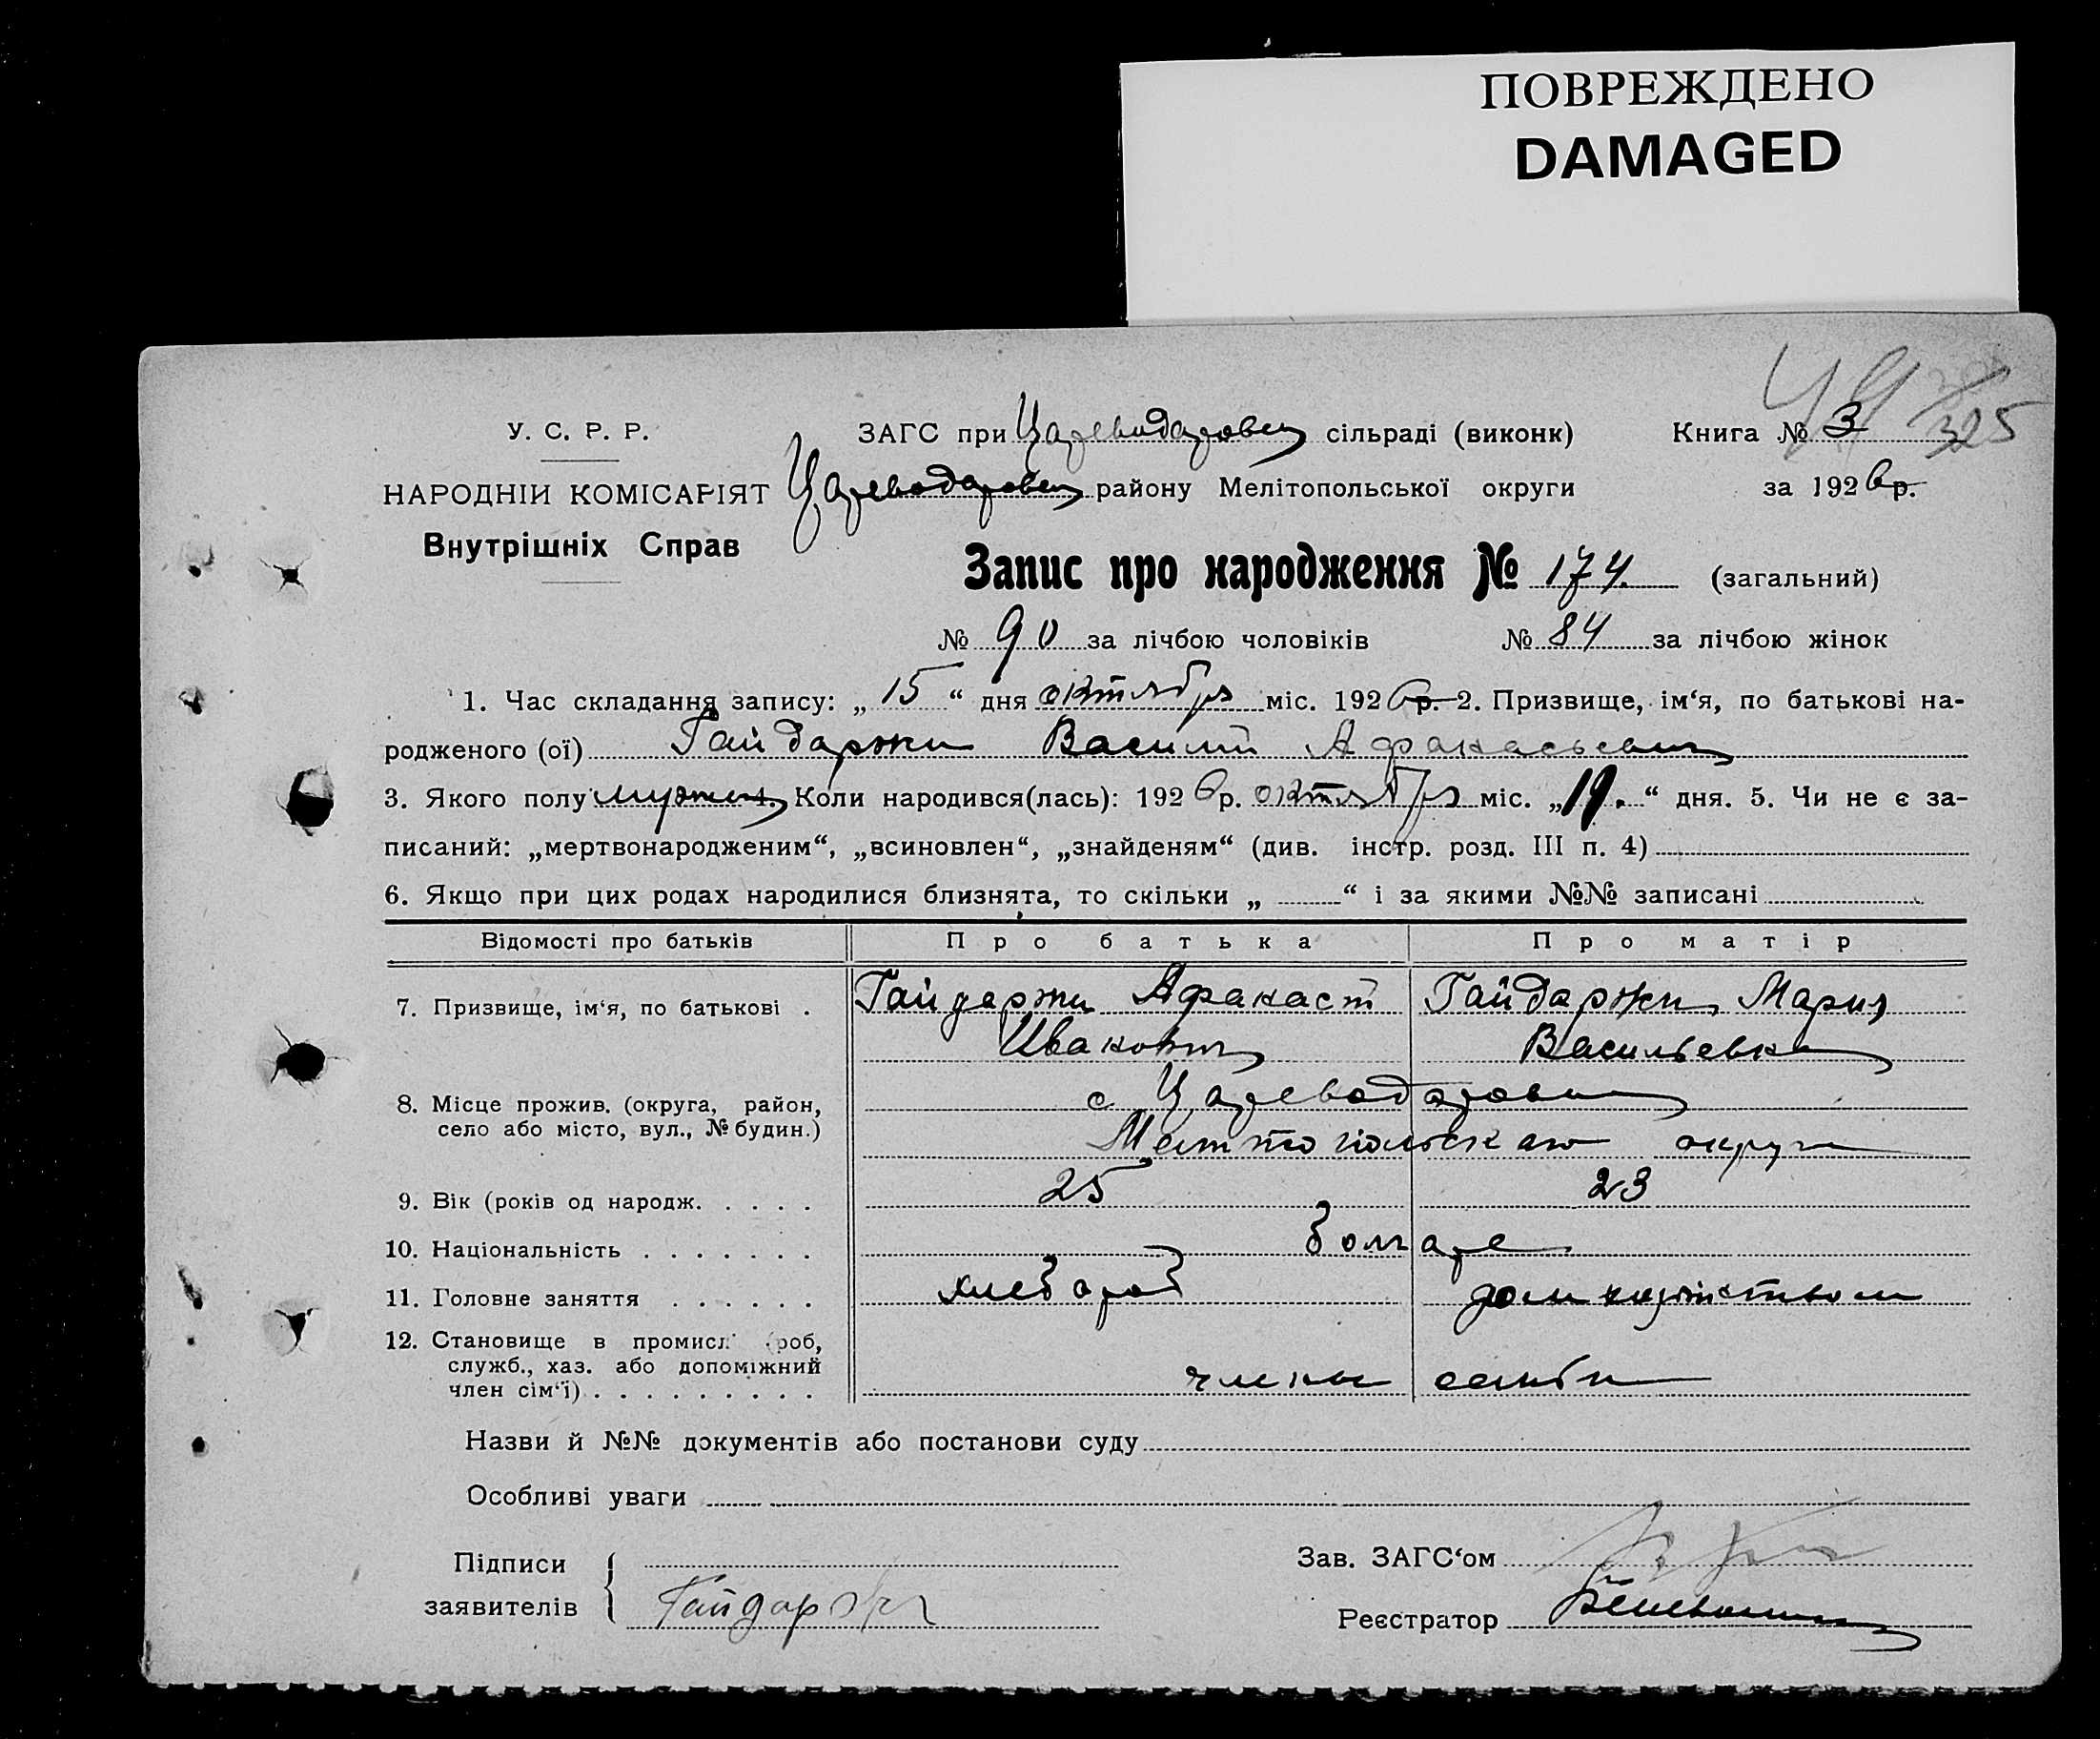 ПОВРЕЖДЕНО
DAMAGED
325
У. С. Р. Р.
ЗАГС при Цареводаровск сільраді (виконк)
Книга № 3
НАРОДНІЙ КОМІСАРІЯТ
Цареводаровск району Мелітопольської округи
за 1926 р.
Внутрішніх Справ
Запис про народження № 174. (загальний)
№ 90 за лічбою чоловіків № 84 за лічбою жінок
1. Час складання запису: „ 15 “ дня октября міс. 1926 р. 2. Призвище, ім‘я, по батькові на-
родженого (ої) Гайдаржи Василий Афанасьевич
3. Якого полу мужск 4. Коли народився(лась): 1926 р. октября міс. „ “ дня. 5. Чи не є за-
писаний: „мертвонародженим“, „всиновлен“, „знайденям“ (див. інстр. розд. III п. 4)
6. Якщо при цих родах народилися близнята, то скільки „ “ і за якими №№ записані
Відомості про батьків Про батька Про матір
7. Призвище, ім‘я, по батькові . Гайдаржи Афанасий Гайдаржи Мария
Иванович Васильевна
8. Місце прожив. (округа, район, с Цареводаровка
село або місто, вул., № будин.) Мелитопольского округа
9. Вік (років од народж. . . . . 25 23
10. Національність . . . . . . . болгаре
11. Головне заняття . . . . . . хлебороб домхозяйством
12. Становище в промисл. (роб,
служб., хаз. або допоміжний члены семьи
член сім‘ї) . . . . . . . . .
Назви й №№ документів або постанови суду
Особливі уваги
Підписи
Зав. ЗАГС‘ом
заявителів Гайдаржи
Реєстратор